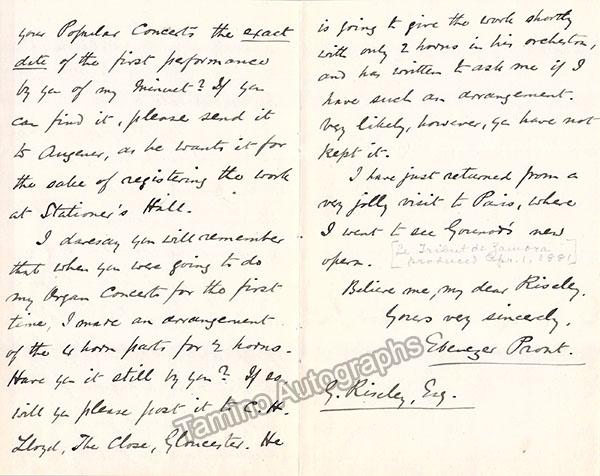 your Popular Concerts the exact
date of the first performance
by you of my Minuet? If you
can find it, please send it
to Augener, as he wants it for
the sake of registering the work
at Stationer's Hall.
I daresay you will remember
that when you were going to do
my Organ Concerto for the first
time, I made an arrangement
of the 4 horn parts for 2 horns.
Have you it still by you? If so,
will you please post it to C. H.
Lloyd, The Close, Gloucester. He
is going to give the work shortly
with only 2 horns in his orchestra,
and has written to ask me if I
have such an arrangement.
Very likely, however, you have not
kept it.
I have just returned from a
very jolly visit to Paris, where
I went to see Gounod's new
opera. [Le Tribut de Zamora
produced Apr. 1, 1881]
Believe me, my dear Riseley,
Yours very sincerely,
Ebenezer Prout.
G. Riseley, Esq.
Tamino Autographs